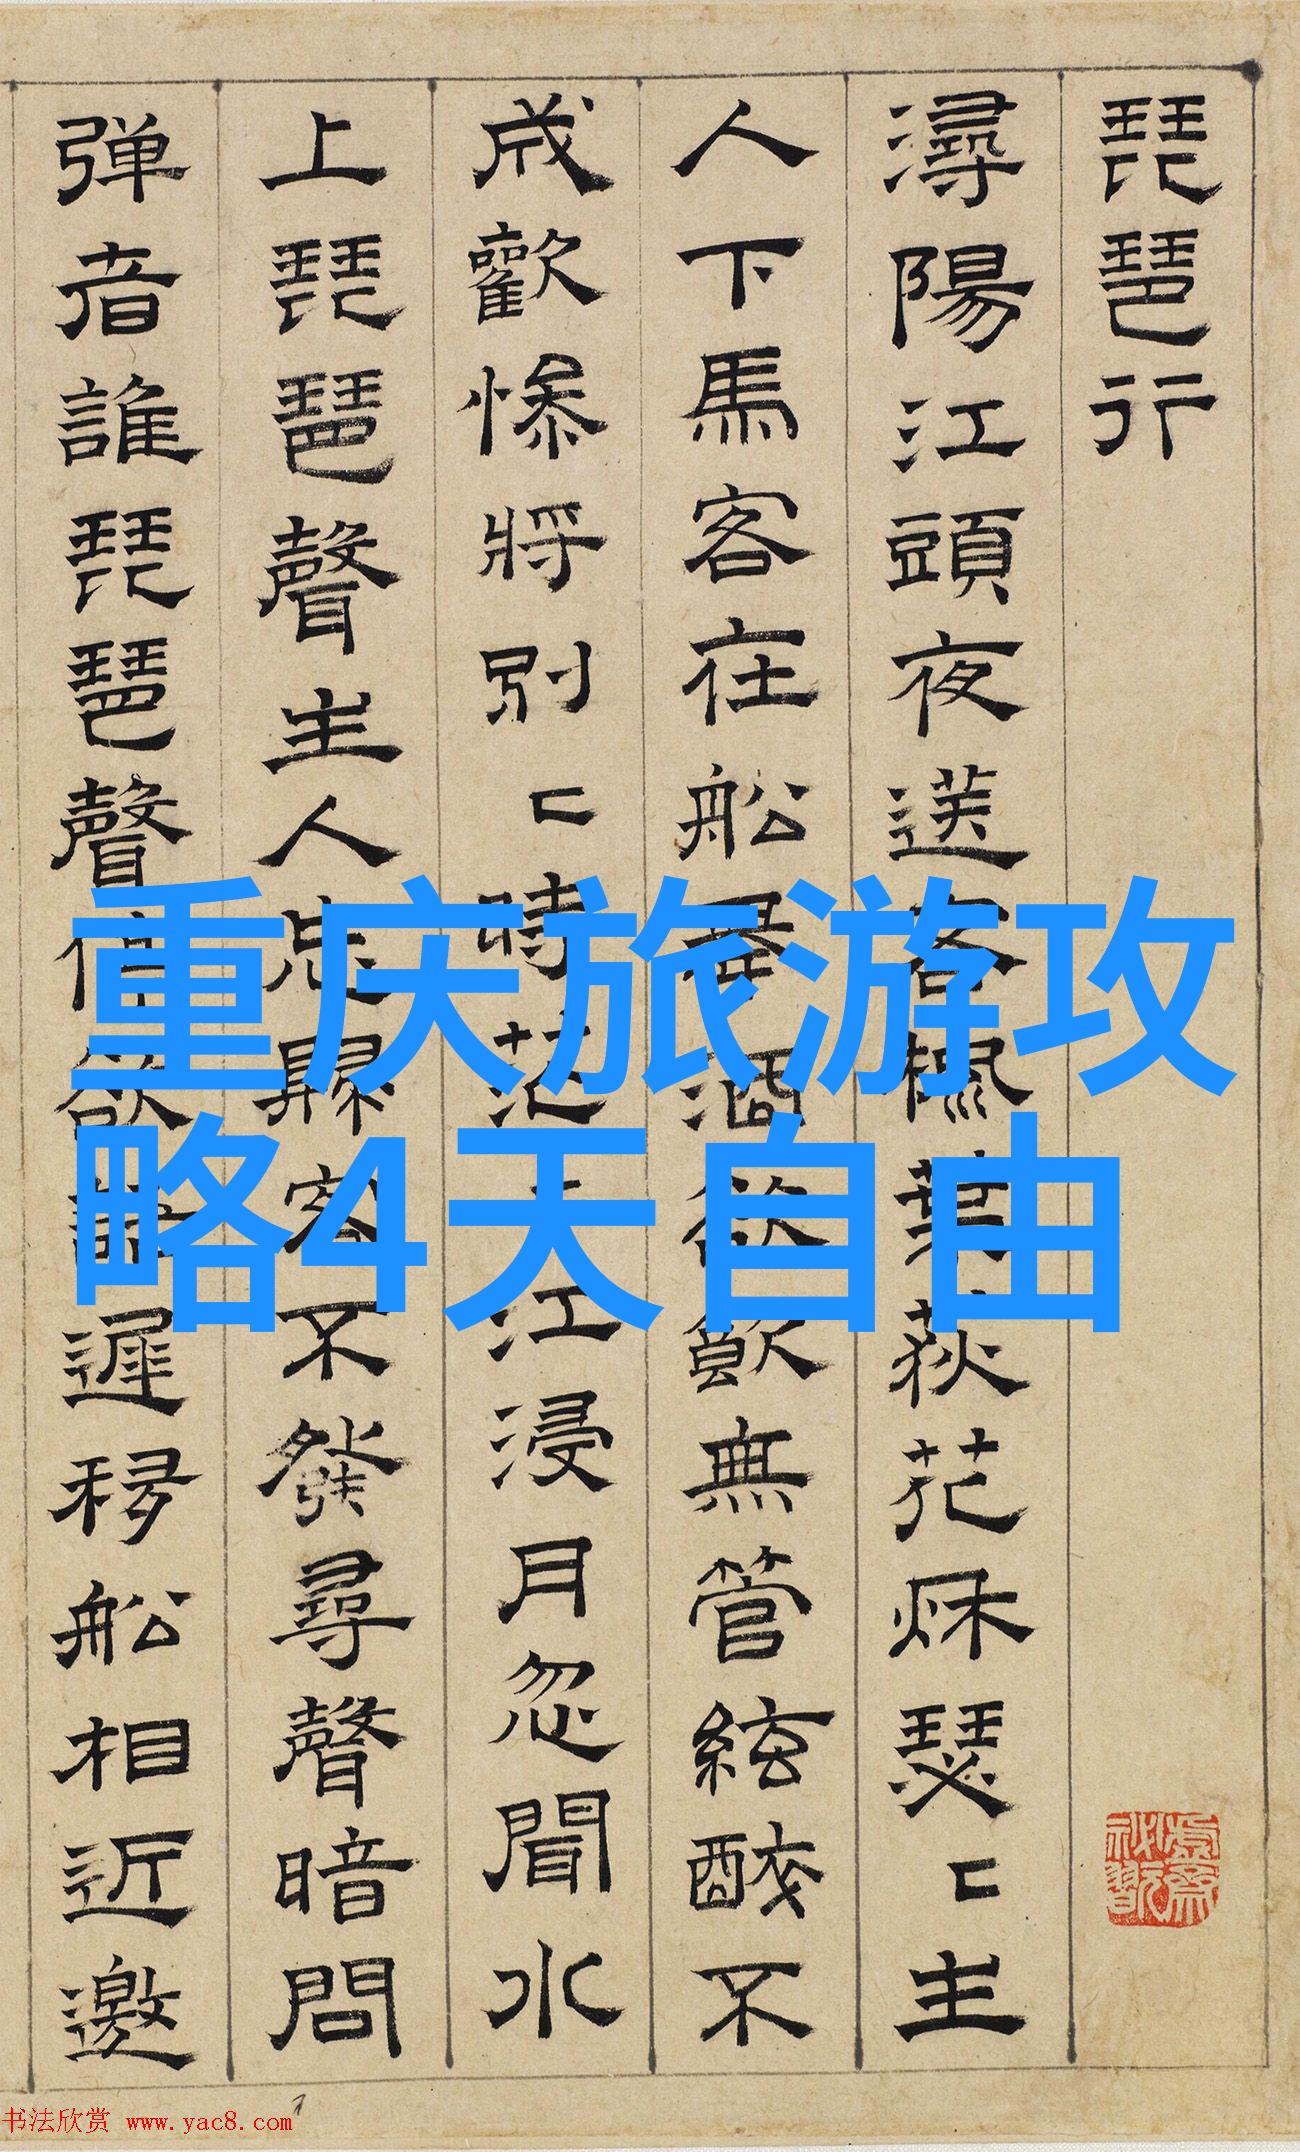 琵琶行
潯陽江頭夜送客楓葉荻花秌瑟〻主
人下馬客在船舉酒欲飲無管絃醉不
成歡慘將別〻時茫〻江浸月忽聞水
上琵琶聲主人忘歸客不發尋聲暗問
弹者誰琵琶聲停欲語遲移船相近邀
重庆旅游攻
略4天自由
书法欣赏 www.yac8.com